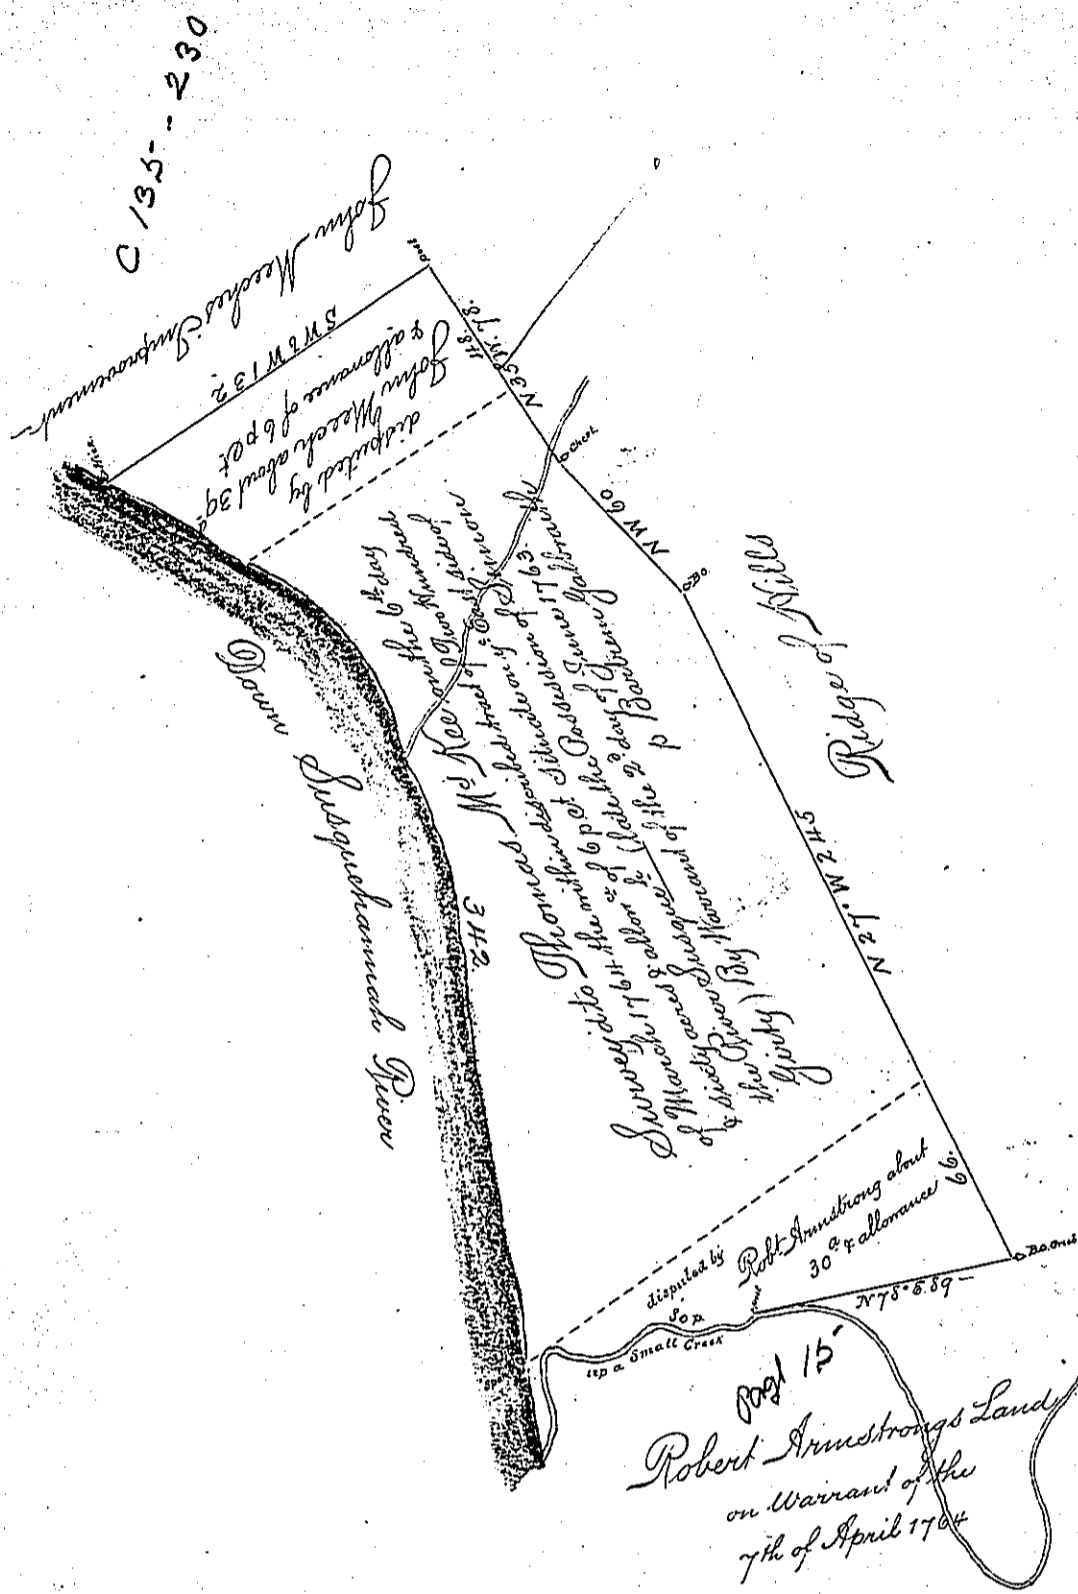 C 135--230
John Meeches Improvement
post
S W b W 132
disputed by
John Meech about 39
& allowance of 6 p ct
N 35 W. 78.
48
Chest.
N W 60
B.O.
Ridge of Hills
N 27° W 245
66.
B.O.
N 78° E. 89
Down Susquehannah River
342
Surveyed to Thomas McKee on the 6th day
of March 1764 the within described tract of Two Hundred
& sixty acres & allow ce of 6 p ct Situate on ye East side of
the River Susque
Girty) By Warrant of the 2d day of June 1763.
p Bartrem Galbraith
disputed by
Robt Armstrong about
30 a & allowance
80 p.
up a Small Creek
page 15
Robert Armstrongs Land
on Warrant of the
7th of April 1764